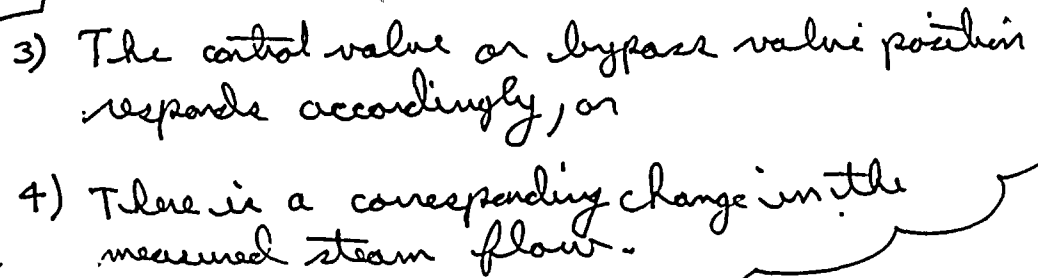 3) The control valve or bypass valve position
responds accordingly, or
4) There is a corresponding change in the
measured steam flow.